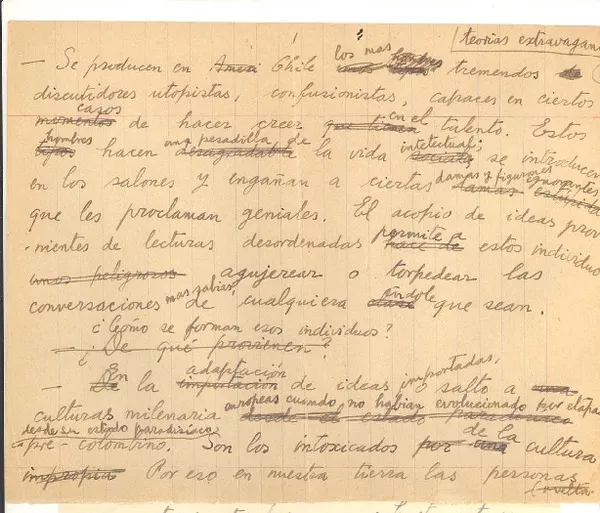 teorías extravagan
— Se producen en Ameri Chile los mas hombres tremendos de
discutidores utopistas, confusionistas, capaces en ciertos
casos momentos de hacer creer que tienen en el talento. Estos
hombres tipos hacen una pesadilla de desagradable la vida intelectual; sociale se introducen
en los salones y engañan a ciertas damas y figurones ignorantes damas estupida
que les proclaman geniales. El acopio de ideas prov
-nientes de lecturas desordenadas permite a hace de estos individuo
unos peligrosos agujerear o torpedear las
conversaciones mas sabias, de cualquiera clase índole que sean.
¿Cómo se forman esos individuos?
— ¿De qué provienen?
— De En la adaptación importación de ideas importadas, o salto a una
culturas milenaria europeas cuando no habian evolucionado por etapa
desde su estado paradisíaco desde el estado paradisiaco
pre-colombino. Son los intoxicados por una de la cultura
impropia Por eso en nuestra tierra las personas